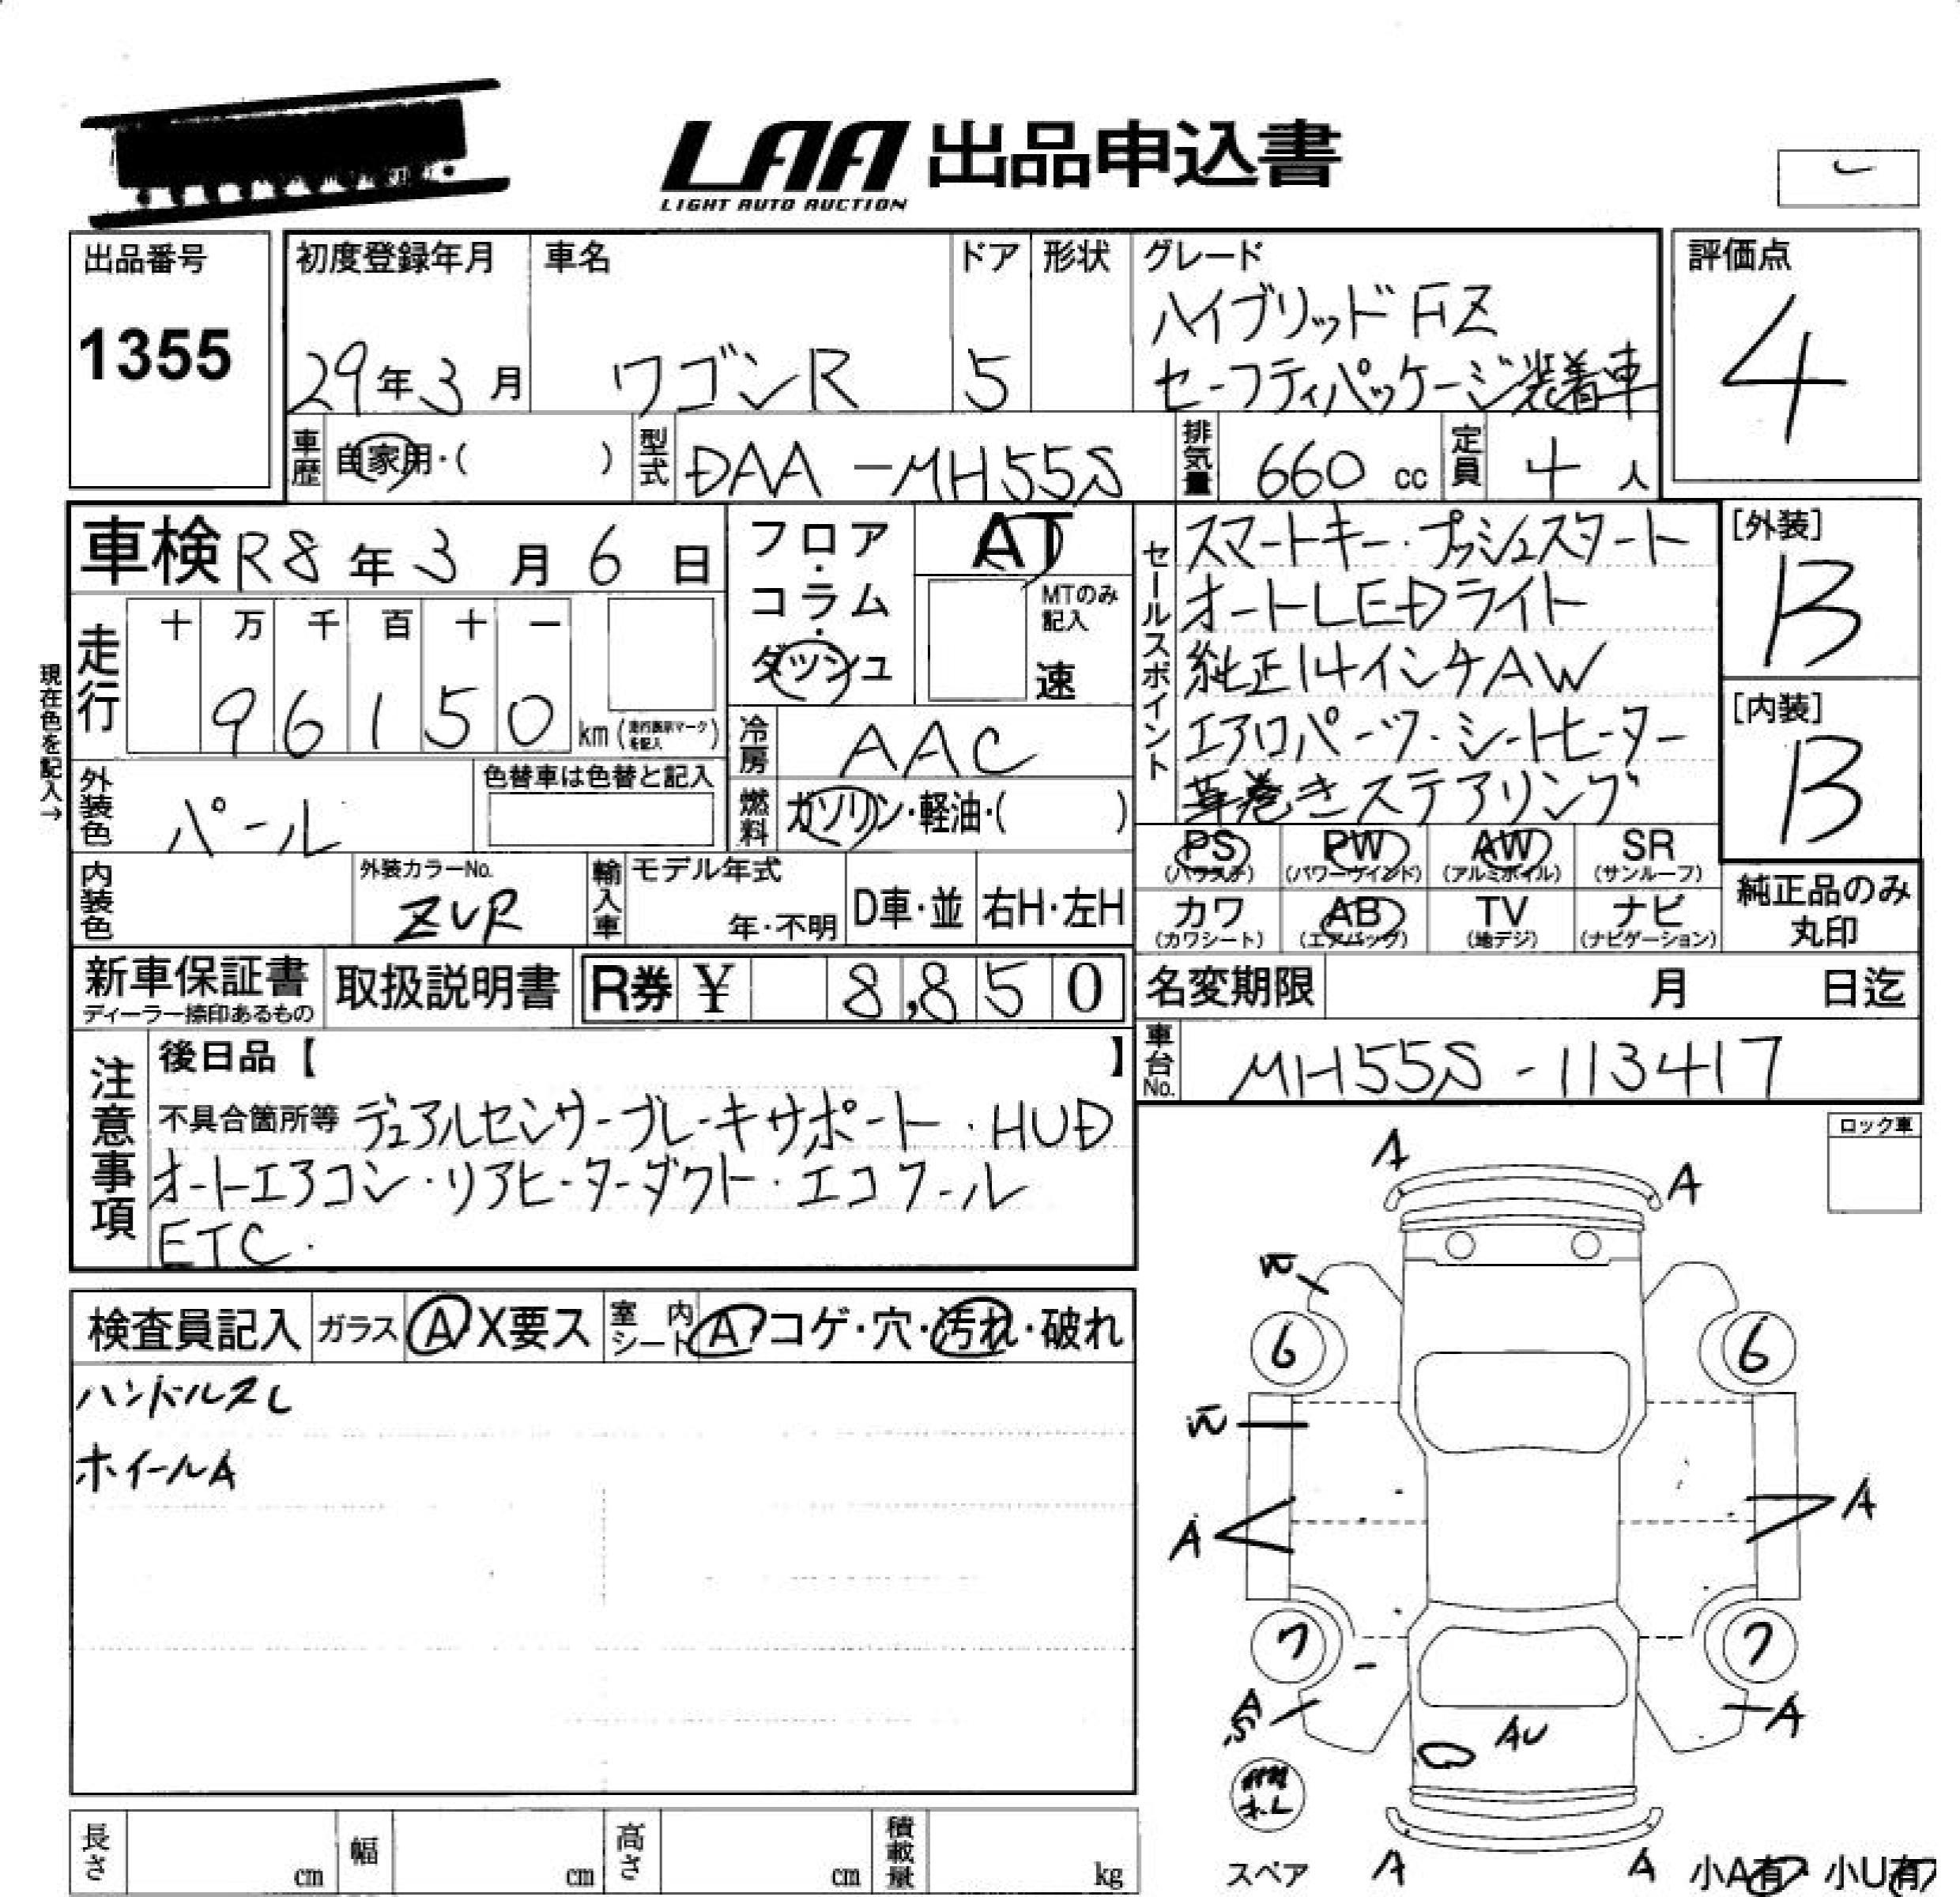 LAA 出品申込書
LIGHT AUTO AUCTION
出品番号
1355
初度登録年月
29年3月
車名
ワゴンR
ドア
5
形状
グレード
ハイブリッドFZ
セーフティパッケージ装着車
評価点
4
車歴
自家用・( )
型式
DAA-MH55S
排気量
660 cc
定員
4人
車検 R8年3月6日
フロア・コラム・ダッシュ
AT
MTのみ記入
速
セールスポイント
スマートキー・プッシュスタート
オートLEDライト
純正14インチAW
エアロパーツ・シートヒーター
革巻きステアリング
[外装]
B
[内装]
B
現在色を記入→
走行
十 万 千 百 十 一
96150 km (走行表示マークを記入)
冷房
AAC
外装色
パール
色替車は色替と記入
燃料
ガソリン・軽油・( )
PS (パワステ)
PW (パワーウインド)
AW (アルミホイル)
SR (サンルーフ)
カワ (カワシート)
AB (エアバッグ)
TV (地デジ)
ナビ (ナビゲーション)
純正品のみ
丸印
内装色
外装カラーNo.
ZVR
輸入車
モデル年式
年・不明
D車・並
右H・左H
新車保証書
ディーラー捺印あるもの
取扱説明書
R券 ¥ 8,850
名変期限 月 日迄
車台No.
MH55S-113417
注意事項
後日品【 】
不具合箇所等 デュアルセンサーブレーキサポート・HUD
オートエアコン・リアヒーターダクト・エコクール
ETC.
ロック車
検査員記入
ガラス
A X要ス
室内シート
A・コゲ・穴・汚れ・破れ
ハンドルスレ
ホイールA
A
A
6
6
A
A
7
7
A
S
A
AU
スペア
A
A
小A有・小U有
長さ cm
幅 cm
高さ cm
積載量 kg